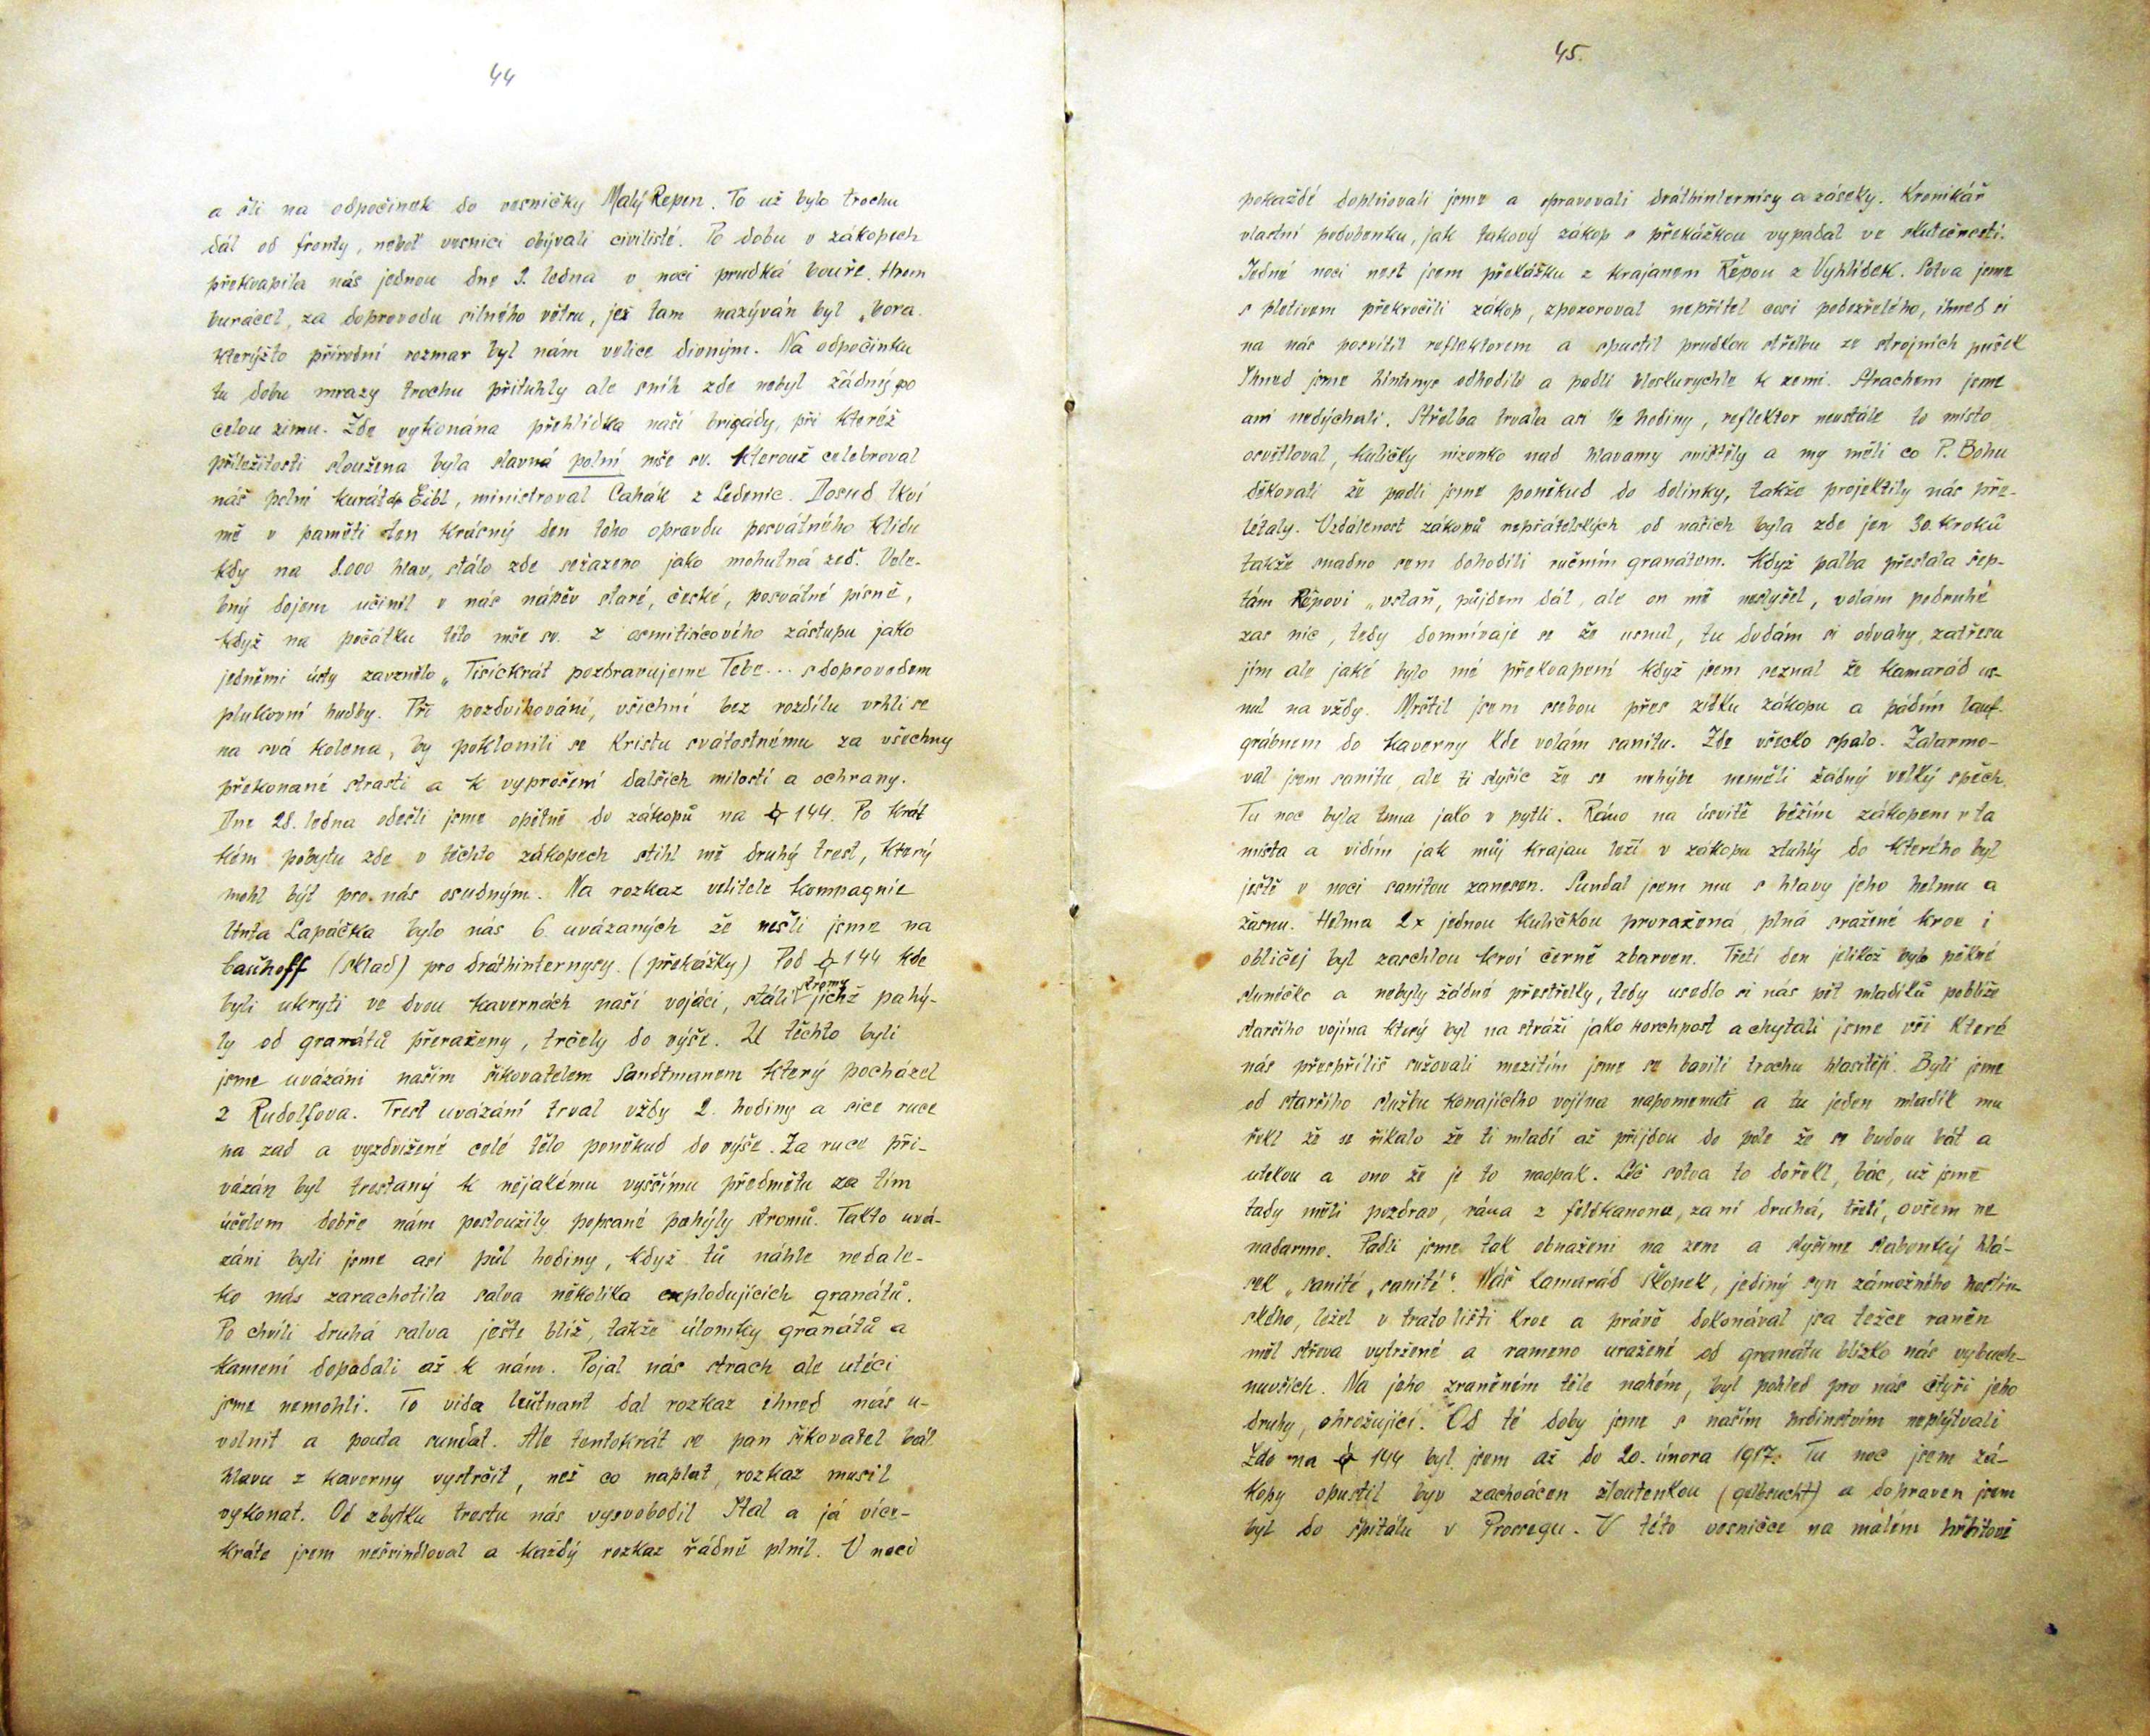 44
a šli na odpočinek do vesničky Malý Repen. To už bylo trochu
dál od fronty, neboť vesnici obývali civilisté. Po dobu v zákopech
překvapila nás jednou dne 2. ledna v noci prudká bouře. Hrom
burácel, za doprovodu silného větru, jež tam nazýván byl „bora.
kterýžto přírodní rozmar byl nám velice divným. Na odpočinku
tu dobu mrazy trochu přituhly ale sníh zde nebyl žádný po
celou zimu. Zde vykonána přehlídka naší brigády, při kteréž
příležitosti sloužena byla slavná polní mše sv. kterouž celebroval
náš polní kurát Eibl, ministroval Cahák z Ledenic. Dosud tkví
mě v paměti ten krásný den toho opravdu posvátného klidu
kdy na 8.000 hlav, stálo zde seřazeno jako mohutná zeď. Vele-
bný dojem učinil v nás nápěv staré, české, posvátné písně,
když na počátku této mše sv. z osmitisícového zástupu jako
jedněmi ústy zavznělo „Tisíckrát pozdravujeme Tebe... s doprovodem
plukovní hudby. Při pozdvihování, všichni bez rozdílu vrhli se
na svá kolena, by poklonili se Kristu svátostnému za všechny
překonané strasti a k vyprošení dalších milostí a ochrany.
Dne 28. ledna odešli jsme opětně do zákopů na 144. Po krát
kém pobytu zde v těchto zákopech stihl mě druhý trest, který
mohl být pro nás osudným. Na rozkaz velitele kompagnie
ltnta Lapáčka bylo nás 6 uvázaných že nešli jsme na
bauhoff (sklad) pro dráthinternysy. (překážky) Pod 144 kde
byli ukryti ve dvou kavernách naší vojáci, stáli stromy jichž pahý-
ly od granátů přeraženy, trčely do výše. U těchto byli
jsme uvázáni našim šikovatelem Sandtmanem který pocházel
z Rudolfova. Trest uvázání trval vždy 2. hodiny a sice ruce
na zad a vyzdvižené celé tělo poněkud do výše. Za ruce při-
vázán byl trestaný k nějakému vyššímu předmětu za tím
účelem dobře nám posloužily popsané pahýly stromů. Takto uvá-
záni byli jsme asi půl hodiny, když tů náhle nedale-
ko nás zarachotila salva několika explodujících granátů.
Po chvíli druhá salva ješte blíž, takže úlomky granátů a
kamení dopadali až k nám. Pojal nás strach ale utéci
jsme nemohli. To vida leutnant dal rozkaz ihned nás u-
volnit a pouta sundat. Ale tentokrát se pan šikovatel bál
hlavu z kaverny vystrčit, než co naplat, rozkaz musil
vykonat. Od zbytku trestu nás vysvobodil Ital a já více-
kráte jsem nešvindloval a každý rozkaz řádně plnil. V noci
45.
pokaždé doplňovali jsme a spravovali dráthinternisy a záseky. Kronikář
vlastní podobenku, jak takový zákop s překážkou vypadal ve skutečnosti.
Jedné noci nest jsem překážku z krajanem Řepou z Vyhlídek. Sotva jsme
s pletivem překročili zákop, zpozoroval nepřítel cosi podezřelého, ihned si
na nás posvítil reflektorem a spustil prudkou střelbu ze strojních pušek
Ihned jsme hintnys odhodili a padli bleskurychle k zemi. Strachem jsme
ani nedýchali. Střelba trvala asi ½ hodiny, reflektor neustále to místo
osvětloval, kuličky nizonko nad hlavamy svištěly a my měli co P. Bohu
děkovati že padli jsme poněkud do dolinky, takže projektily nás pře-
létaly. Vzdálenost zákopů nepřátelských od našich byla zde jen 30. kroků
takže snadno sem dohodili ručním granátem. Když palba přestala šep-
tám Řepovi „vstaň, půjdem dál, ale on mě neslyšel, volam podruhé
zas nic, tedy domnívaje se že usnul, tu dodám si odvahy, zatřesu
jím ale jaké bylo mé překvapení když jsem seznal že kamarád us-
nul na vždy. Mrštil jsem sebou přes zídku zákopu a pádím lauf-
grábnem do kaverny kde volám sanitu. Zde všecko spalo. Zalarmo-
val jsem sanitu, ale ti slyšíc že se nehýbe neměli žádný velký spěch.
Tu noc byla tma jako v pytli. Ráno na úsvitě běžím zákopem v ta
místa a vidím jak můj krajan leží v zákopu ztuhlý do kterého byl
ještě v noci sanitou zanesen. Sundal jsem mu s hlavy jeho helmu a
žasnu. Helma 2x jednou kuličkou proražená, plná sražené krve i
obličej byl zaschlou krví černě zbarven. Třetí den jelikož bylo pěkné
sluníčko a nebyly žádné přestřelky, tedy usedlo si nás pět mladíků poblíže
staršího vojína který byl na stráži jako horchpost a chytali jsme vši které
nás přespříliš sužovali mezitím jsme se bavili trochu hlasitěji. Byli jsme
od staršího službu konajícího vojína napomenuti a tu jeden mladík mu
řekl že se říkalo že ti mladí až přijdou do pole že se budou bát a
utekou a ono že je to naopak. Leč sotva to dořekl, bác, už jsme
tady měli pozdrav, rána z feldkanonu, za ní druhá, třetí, ovšem ne
nadarmo. Padli jsme tak obnaženi na zem a slyšíme slabounký hlá-
sek „sanité „sanité". Náš kamarád Škopek, jediný syn zámožného hostin-
ského, ležel v tratolišti krve a právě dokonával jsa težce raněn
měl střeva vytržené a rameno uražené od granátu blízko nás vybuch-
nuvších. Na jeho zraněném těle nahém, byl pohled pro nás čtyři jeho
druhy, ohrožující. Od té doby jsme s naším hrdinstvím neplýtvali
Zde na 144 byl jsem až do 20. února 1917. Tu noc jsem zá-
kopy opustil byv zachvácen žloutenkou (gelbsucht) a dopraven jsem
byl do špitálu v Prossegu. V této vesničce na málém hřbitově